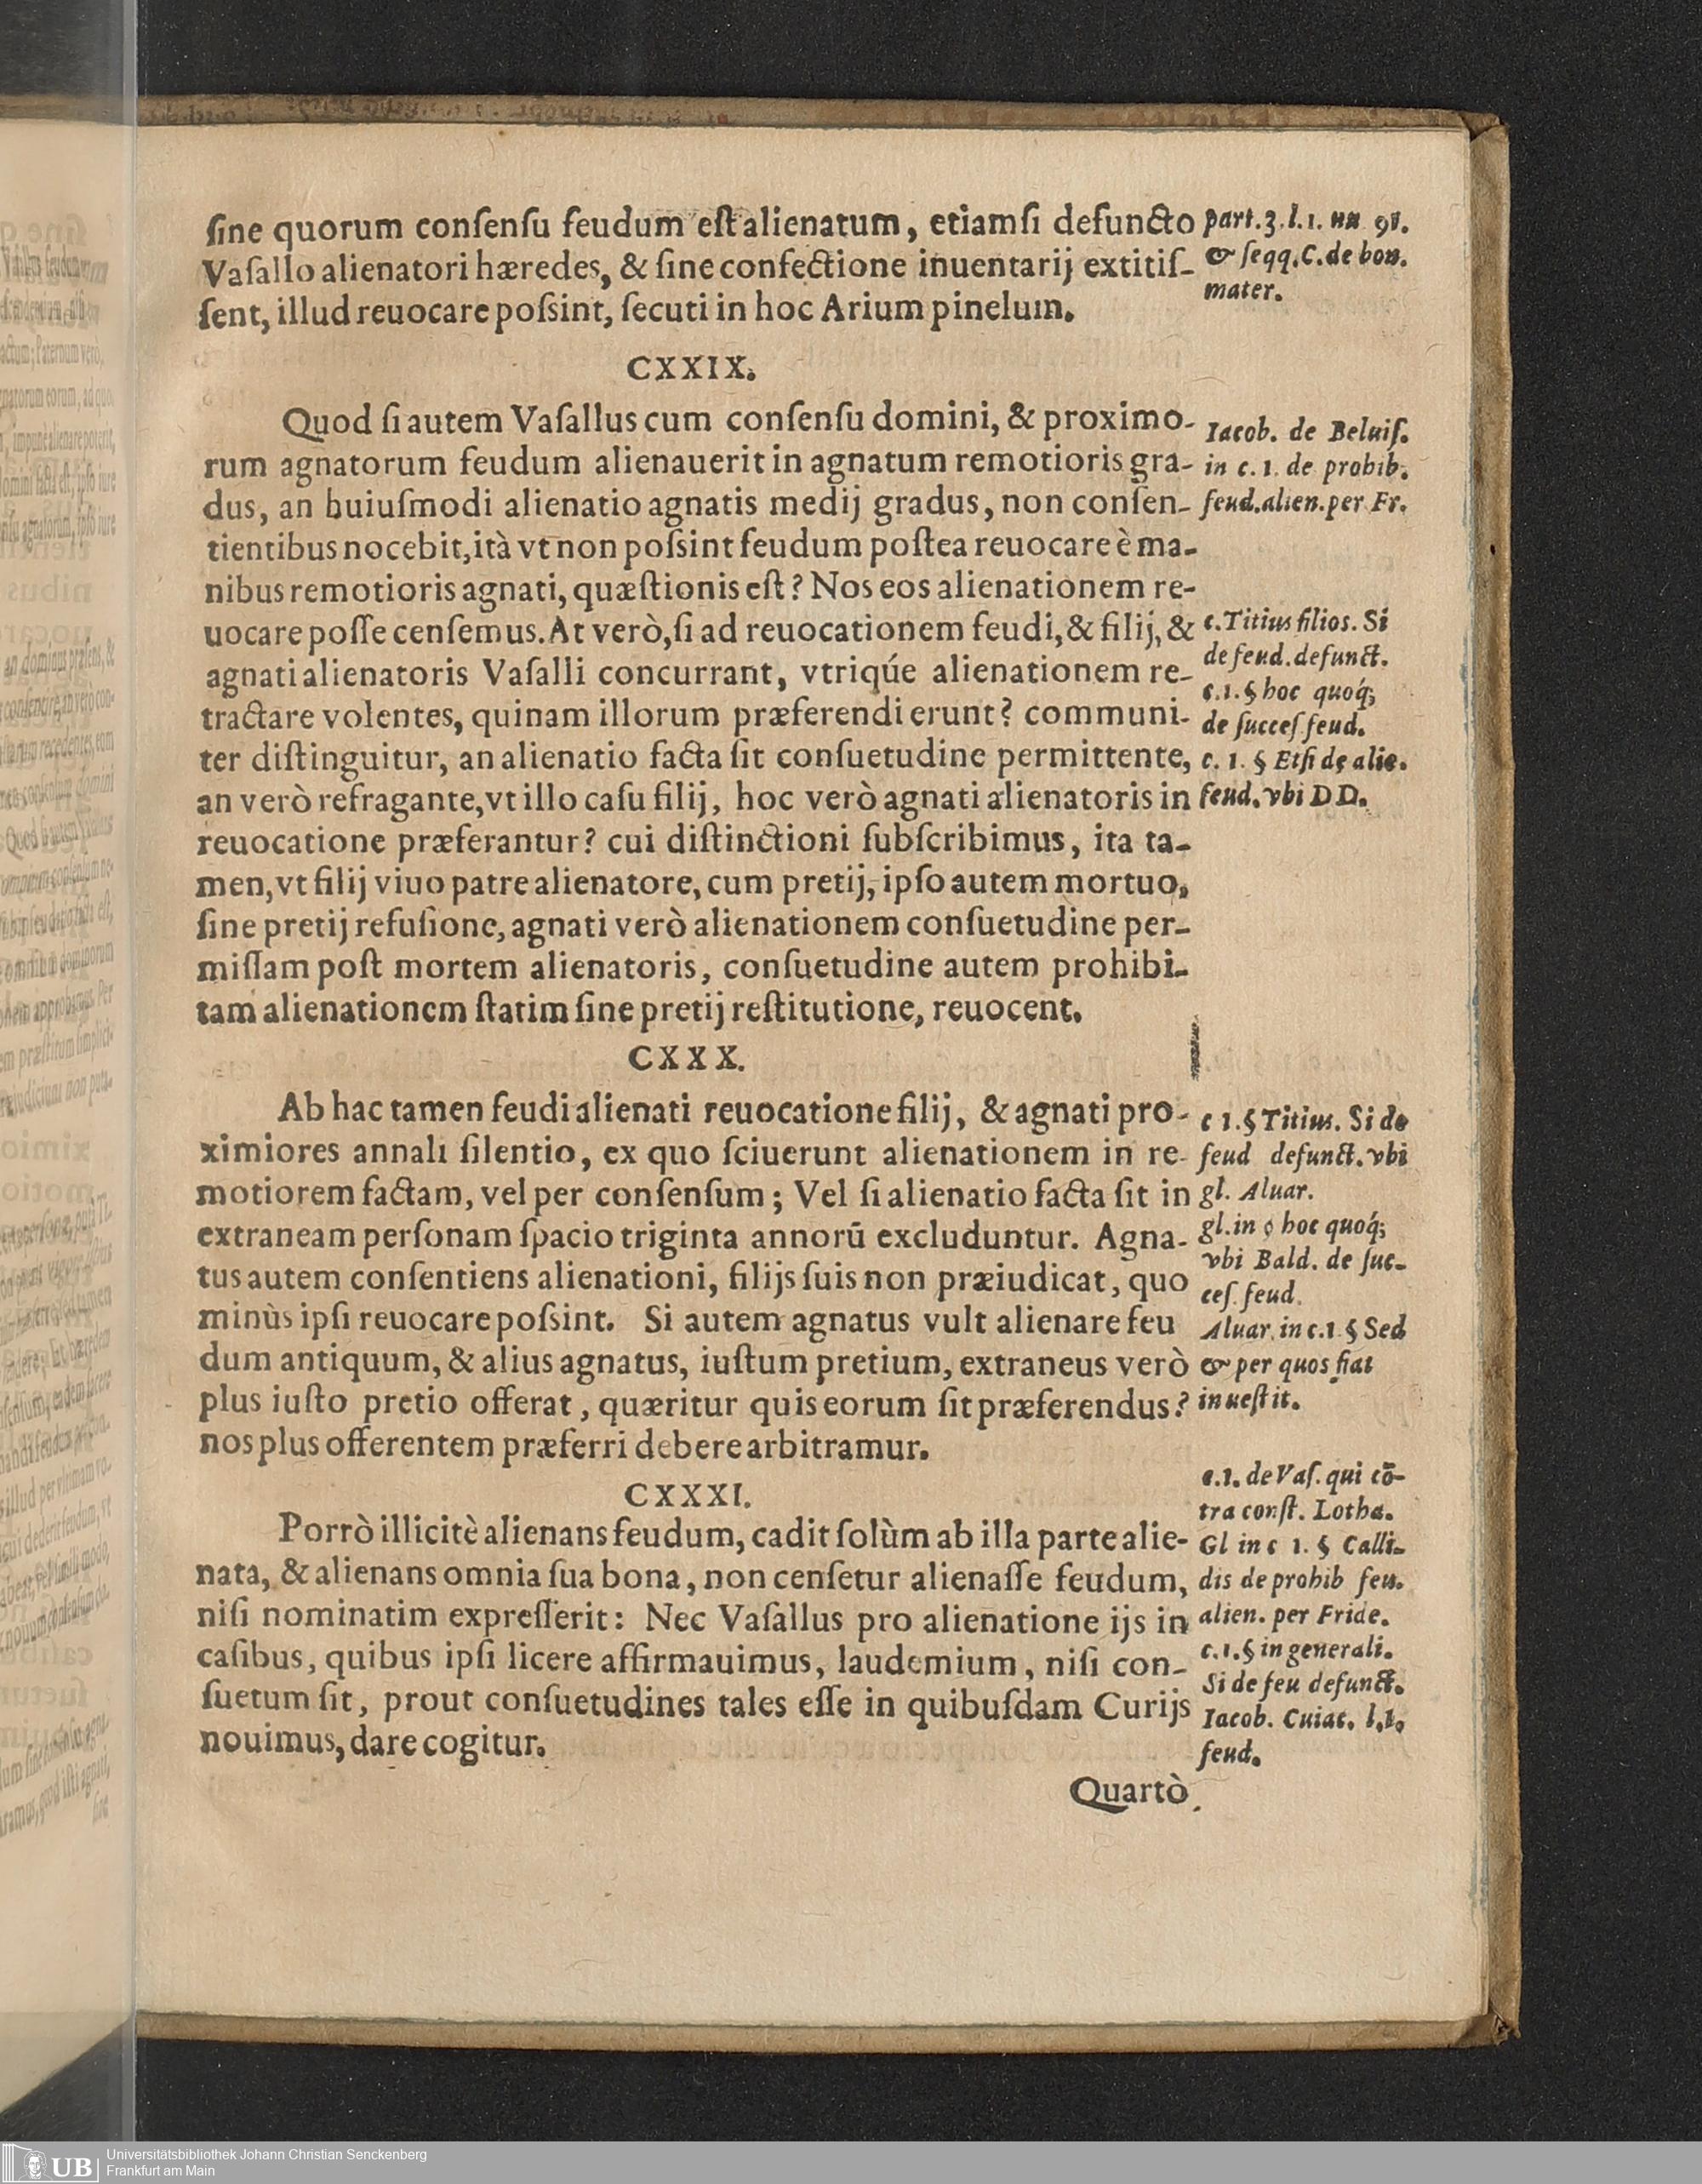 ſine quorum conſenſu feudum eſt alienatum, etiamſi defuncto
Vaſallo alienatori hæredes, & ſine confectione inuentarij extitiſ-
ſent, illud reuocare poſsint, ſecuti in hoc Arium pinelum.
part. 3. l. 1. nu 91.
& ſeqq. C. de bon.
mater.
CXXIX.
Quod ſi autem Vaſallus cum conſenſu domini, & proximo-
rum agnatorum feudum alienauerit in agnatum remotioris gra-
dus, an huiuſmodi alienatio agnatis medij gradus, non conſen-
tientibus nocebit, ità vt non poſsint feudum poſtea reuocare è ma-
nibus remotioris agnati, quæſtionis eſt? Nos eos alienationem re-
uocare poſſe cenſemus. At verò, ſi ad reuocationem feudi, & filij, &
agnati alienatoris Vaſalli concurrant, vtriqúe alienationem re-
tractare volentes, quinam illorum præferendi erunt? communi-
ter diſtinguitur, an alienatio facta ſit conſuetudine permittente,
an verò refragante, vt illo caſu filij, hoc verò agnati alienatoris in
reuocatione præferantur? cui diſtinctioni ſubſcribimus, ita ta-
men, vt filij viuo patre alienatore, cum pretij, ipſo autem mortuo,
ſine pretij refuſione, agnati verò alienationem conſuetudine per-
miſſam poſt mortem alienatoris, conſuetudine autem prohibi-
tam alienationem ſtatim ſine pretij reſtitutione, reuocent.
Iacob. de Beluiſ.
in c. 1. de prohib.
feud. alien. per Fr.
c. Titius filios. Si
de feud. defunct.
c. 1. § hoc quoq́;
de ſucceſ. feud.
c. 1. § Etſi de alie.
feud. vbi DD.
CXXX.
Ab hac tamen feudi alienati reuocatione filij, & agnati pro-
ximiores annali ſilentio, ex quo ſciuerunt alienationem in re-
motiorem factam, vel per conſenſum; Vel ſi alienatio facta ſit in
extraneam perſonam ſpacio triginta annorū excluduntur. Agna-
tus autem conſentiens alienationi, filijs ſuis non præiudicat, quo
minùs ipſi reuocare poſsint. Si autem agnatus vult alienare feu
dum antiquum, & alius agnatus, iuſtum pretium, extraneus verò
plus iuſto pretio offerat, quæritur quis eorum ſit præferendus?
nos plus offerentem præferri debere arbitramur.
c 1. § Titius. Si de
feud defunct. vbi
gl. Aluar.
gl. in § hoc quoq́;
vbi Bald. de ſuc-
ceſ. feud.
Aluar. in c. 1 § Sed
& per quos fiat
inueſtit.
CXXXI.
Porrò illicitè alienans feudum, cadit ſolùm ab illa parte alie-
nata, & alienans omnia ſua bona, non cenſetur alienaſſe feudum,
niſi nominatim expreſſerit: Nec Vaſallus pro alienatione ijs in
caſibus, quibus ipſi licere affirmauimus, laudemium, niſi con-
ſuetum ſit, prout conſuetudines tales eſſe in quibuſdam Curijs
nouimus, dare cogitur.
c. 1. de Vaſ. qui cō-
tra conſt. Lotha.
Gl in c 1. § Calli-
dis de prohib feu.
alien. per Fride.
c. 1. § in generali.
Si de feu defunct.
Iacob. Cuiac. l. 1.
feud.
Quartò
UB
Universitätsbibliothek Johann Christian Senckenberg
Frankfurt am Main